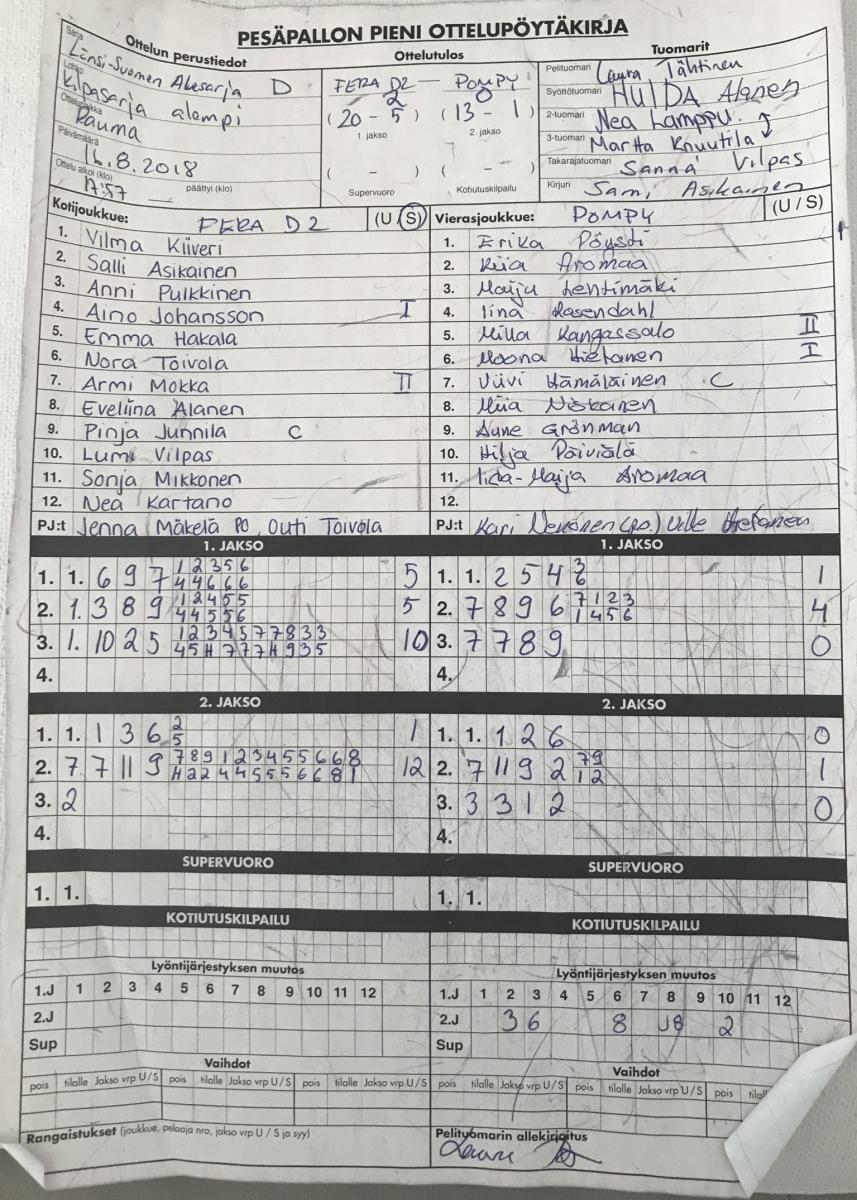 PESÄPALLON PIENI OTTELUPÖYTÄKIRJA
Ottelun perustiedot
Sarja
Länsi-Suomen Aluesarja D
Lohko
Kilpasarja alempi
Ottelupaikka
Rauma
Päivämäärä
16.8.2018
Ottelu alkoi (klo) päättyi (klo)
17:57
Ottelutulos
FERA D2 — POMPY
2 0
( 20 - 5 ) ( 13 - 1 )
1. jakso 2. jakso
( - ) ( - )
Supervuoro Kotiutuskilpailu
Tuomarit
Pelituomari Laura Tähtinen
Syöttötuomari HULDA Alanen
2-tuomari Nea Lamppu
3-tuomari Martta Knuutila
Takarajatuomari Sanna Vilpas
Kirjuri Sami Asikainen
Kotijoukkue: FERA D2 (U / S)
1. Vilma Kiiveri
2. Salli Asikainen
3. Anni Pulkkinen
4. Aino Johansson I
5. Emma Hakala
6. Nora Toivola
7. Armi Mokka II
8. Eveliina Alanen
9. Pinja Junnila C
10. Lumi Vilpas
11. Sonja Mikkonen
12. Nea Kartano
PJ:t Jenna Mäkelä PO, Outi Toivola
Vierasjoukkue: POMPY (U / S)
1. Erika Pöysti
2. Kiia Aromaa
3. Maiju Lehtimäki
4. Iina Rosendahl
5. Milla Kangassalo II
6. Moona Hietanen I
7. Viivi Hämäläinen C
8. Miia Niskanen
9. Aune Grönman
10. Hilja Päiviälä
11. Iida-Maija Aromaa
12.
PJ:t Kari (po.) Ville Hietanen
1. JAKSO
1. 1. 6 9 7 1 2 3 5 6 5
4 4 6 6 6
2. 1. 3 8 9 1 2 4 5 5 5
4 4 5 5 6
3. 1. 10 2 5 1 2 3 4 5 7 7 8 3 3 10
4 5 H 7 7 7 H 9 3 5
4.
2. JAKSO
1. 1. 1 3 6 2 1
5
2. 7 7 11 9 7 8 9 1 2 3 4 5 5 6 6 8 12
H 2 2 4 4 5 5 5 6 6 8 1
3. 2
4.
SUPERVUORO
1. 1.
KOTIUTUSKILPAILU
Lyöntijärjestyksen muutos
1.J 1 2 3 4 5 6 7 8 9 10 11 12
2.J
Sup
Vaihdot
pois tilalle Jakso vrp U / S pois tilalle Jakso vrp U / S pois tilalle Jakso vrp U / S
Rangaistukset (joukkue, pelaaja nro, jakso vrp U / S ja syy)
1. JAKSO
1. 1. 2 5 4 3 1
6
2. 7 8 9 6 7 1 2 3 4
1 4 5 6
3. 7 7 8 9 0
4.
2. JAKSO
1. 1. 1 2 6 0
2. 7 11 9 2 7 9 1
1 2
3. 3 3 1 2 0
4.
SUPERVUORO
1. 1.
KOTIUTUSKILPAILU
Lyöntijärjestyksen muutos
1.J 1 2 3 4 5 6 7 8 9 10 11 12
2.J 3 6 8 J8 2
Sup
Vaihdot
pois tilalle Jakso vrp U / S pois tilalle Jakso vrp U / S pois
Pelituomarin allekirjoitus